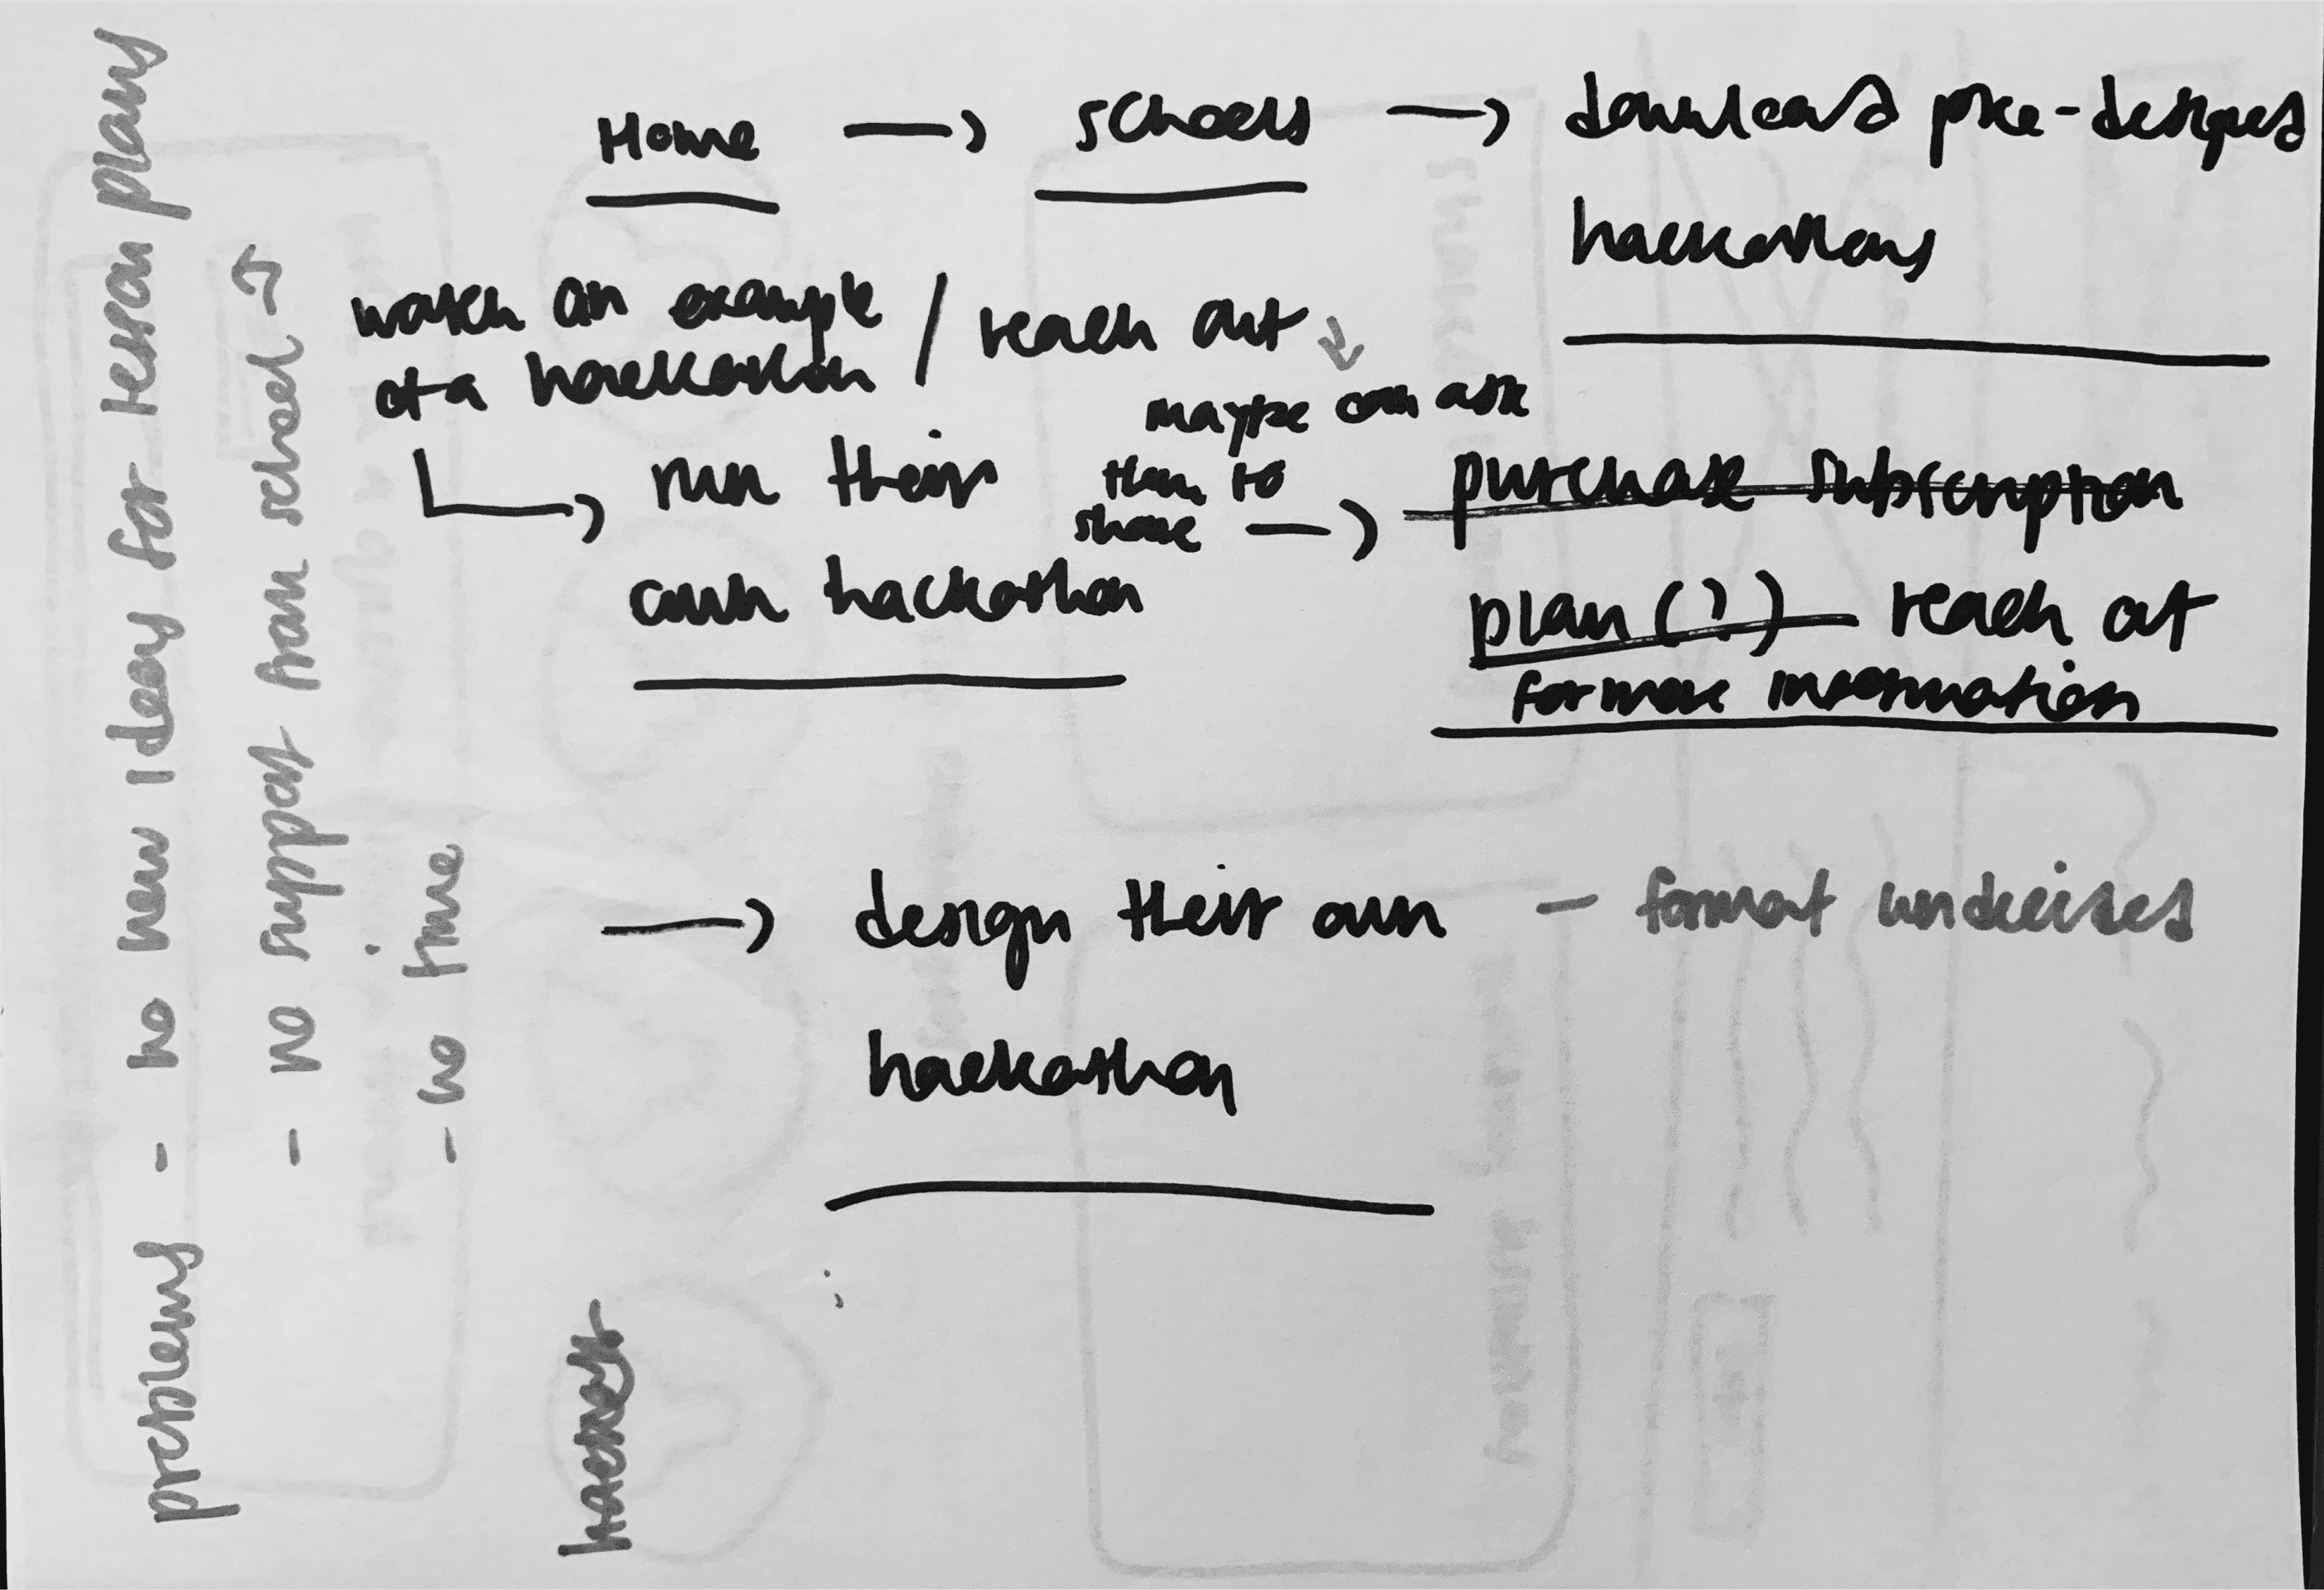 Home → schools → download pre-designed
hackathons
watch an example / reach out ↓
of a hackathon
maybe can ask
them to
share →
↳ run their
own hackathon
purchase subscription
plan (?) reach out
for more information
→ design their own - format undecided
hackathon
problems - no new ideas for lesson plans
- no support from school →
- no time